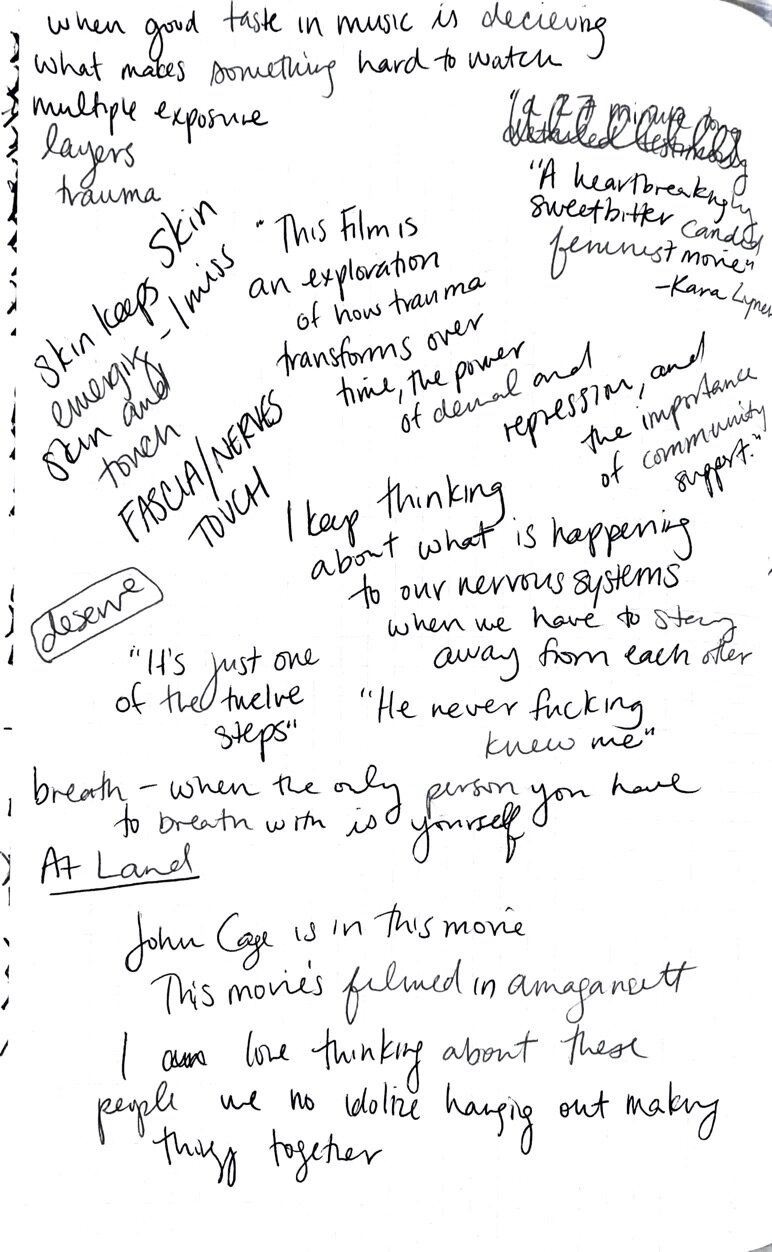 when good taste in music is decieving
what makes something hard to watch
multiple exposure
layers
trauma
"a 27 minute long
detailed testimony
"A heartbreakingly
sweetbitter candid
feminist movie"
-Kara Lynch
Skin
skin keeps
emerging - I miss
skin and
touch
FASCIA/NERVES
TOUCH
"This Film is
an exploration
of how trauma
transforms over
time, the power
of denial and
repression, and
the importance
of community
support."
I keep thinking
about what is happening
to our nervous systems
when we have to stay
away from each other
deserve
"It's just one
of the twelve
steps"
"He never fucking
knew me"
breath - when the only person you have
to breath with is yourself
At Land
John Cage is in this movie
This movie's filmed in amagansett
I love thinking about these
people we no idolize hangig out making
things together